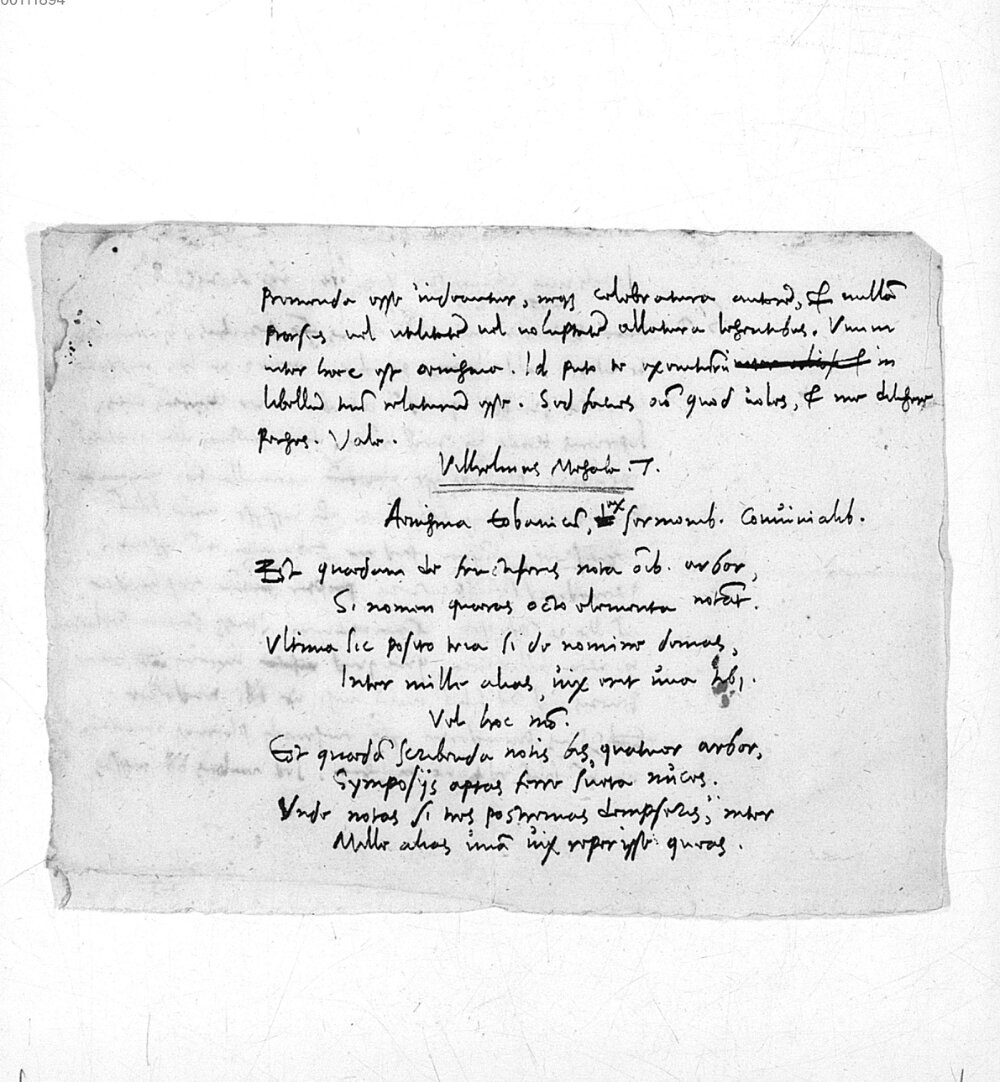 00111894
promenda esse indicantur, neqꝫ celebratura autorē, & nullā
prorsus vel utilitatē vel voluptatē allatura legentibus. Unum
inter hæc est ænigma. Id puto te in
libellū tuū relaturū esse. Sed facies oīa quod voles, & me diligere
perges. Vale.
Vilhelmus T.
Aenigma Eobanicū, ex sermonib. Convivialib.
Est quædam de fructiferis nota oīb. arbor,
Si nomen quæras octo elementa notāt.
Ultima sic posito tria si de nomine demas,
Inter mille alias, vix erit una tibi.
Vel hoc mō.
Est quædā scribenda notis bis quatuor arbor,
Symposijs aptas ferre sueta nuces.
Unde notas si tres postremas dempseris, inter
Mille alias unā vix reperisse queas.